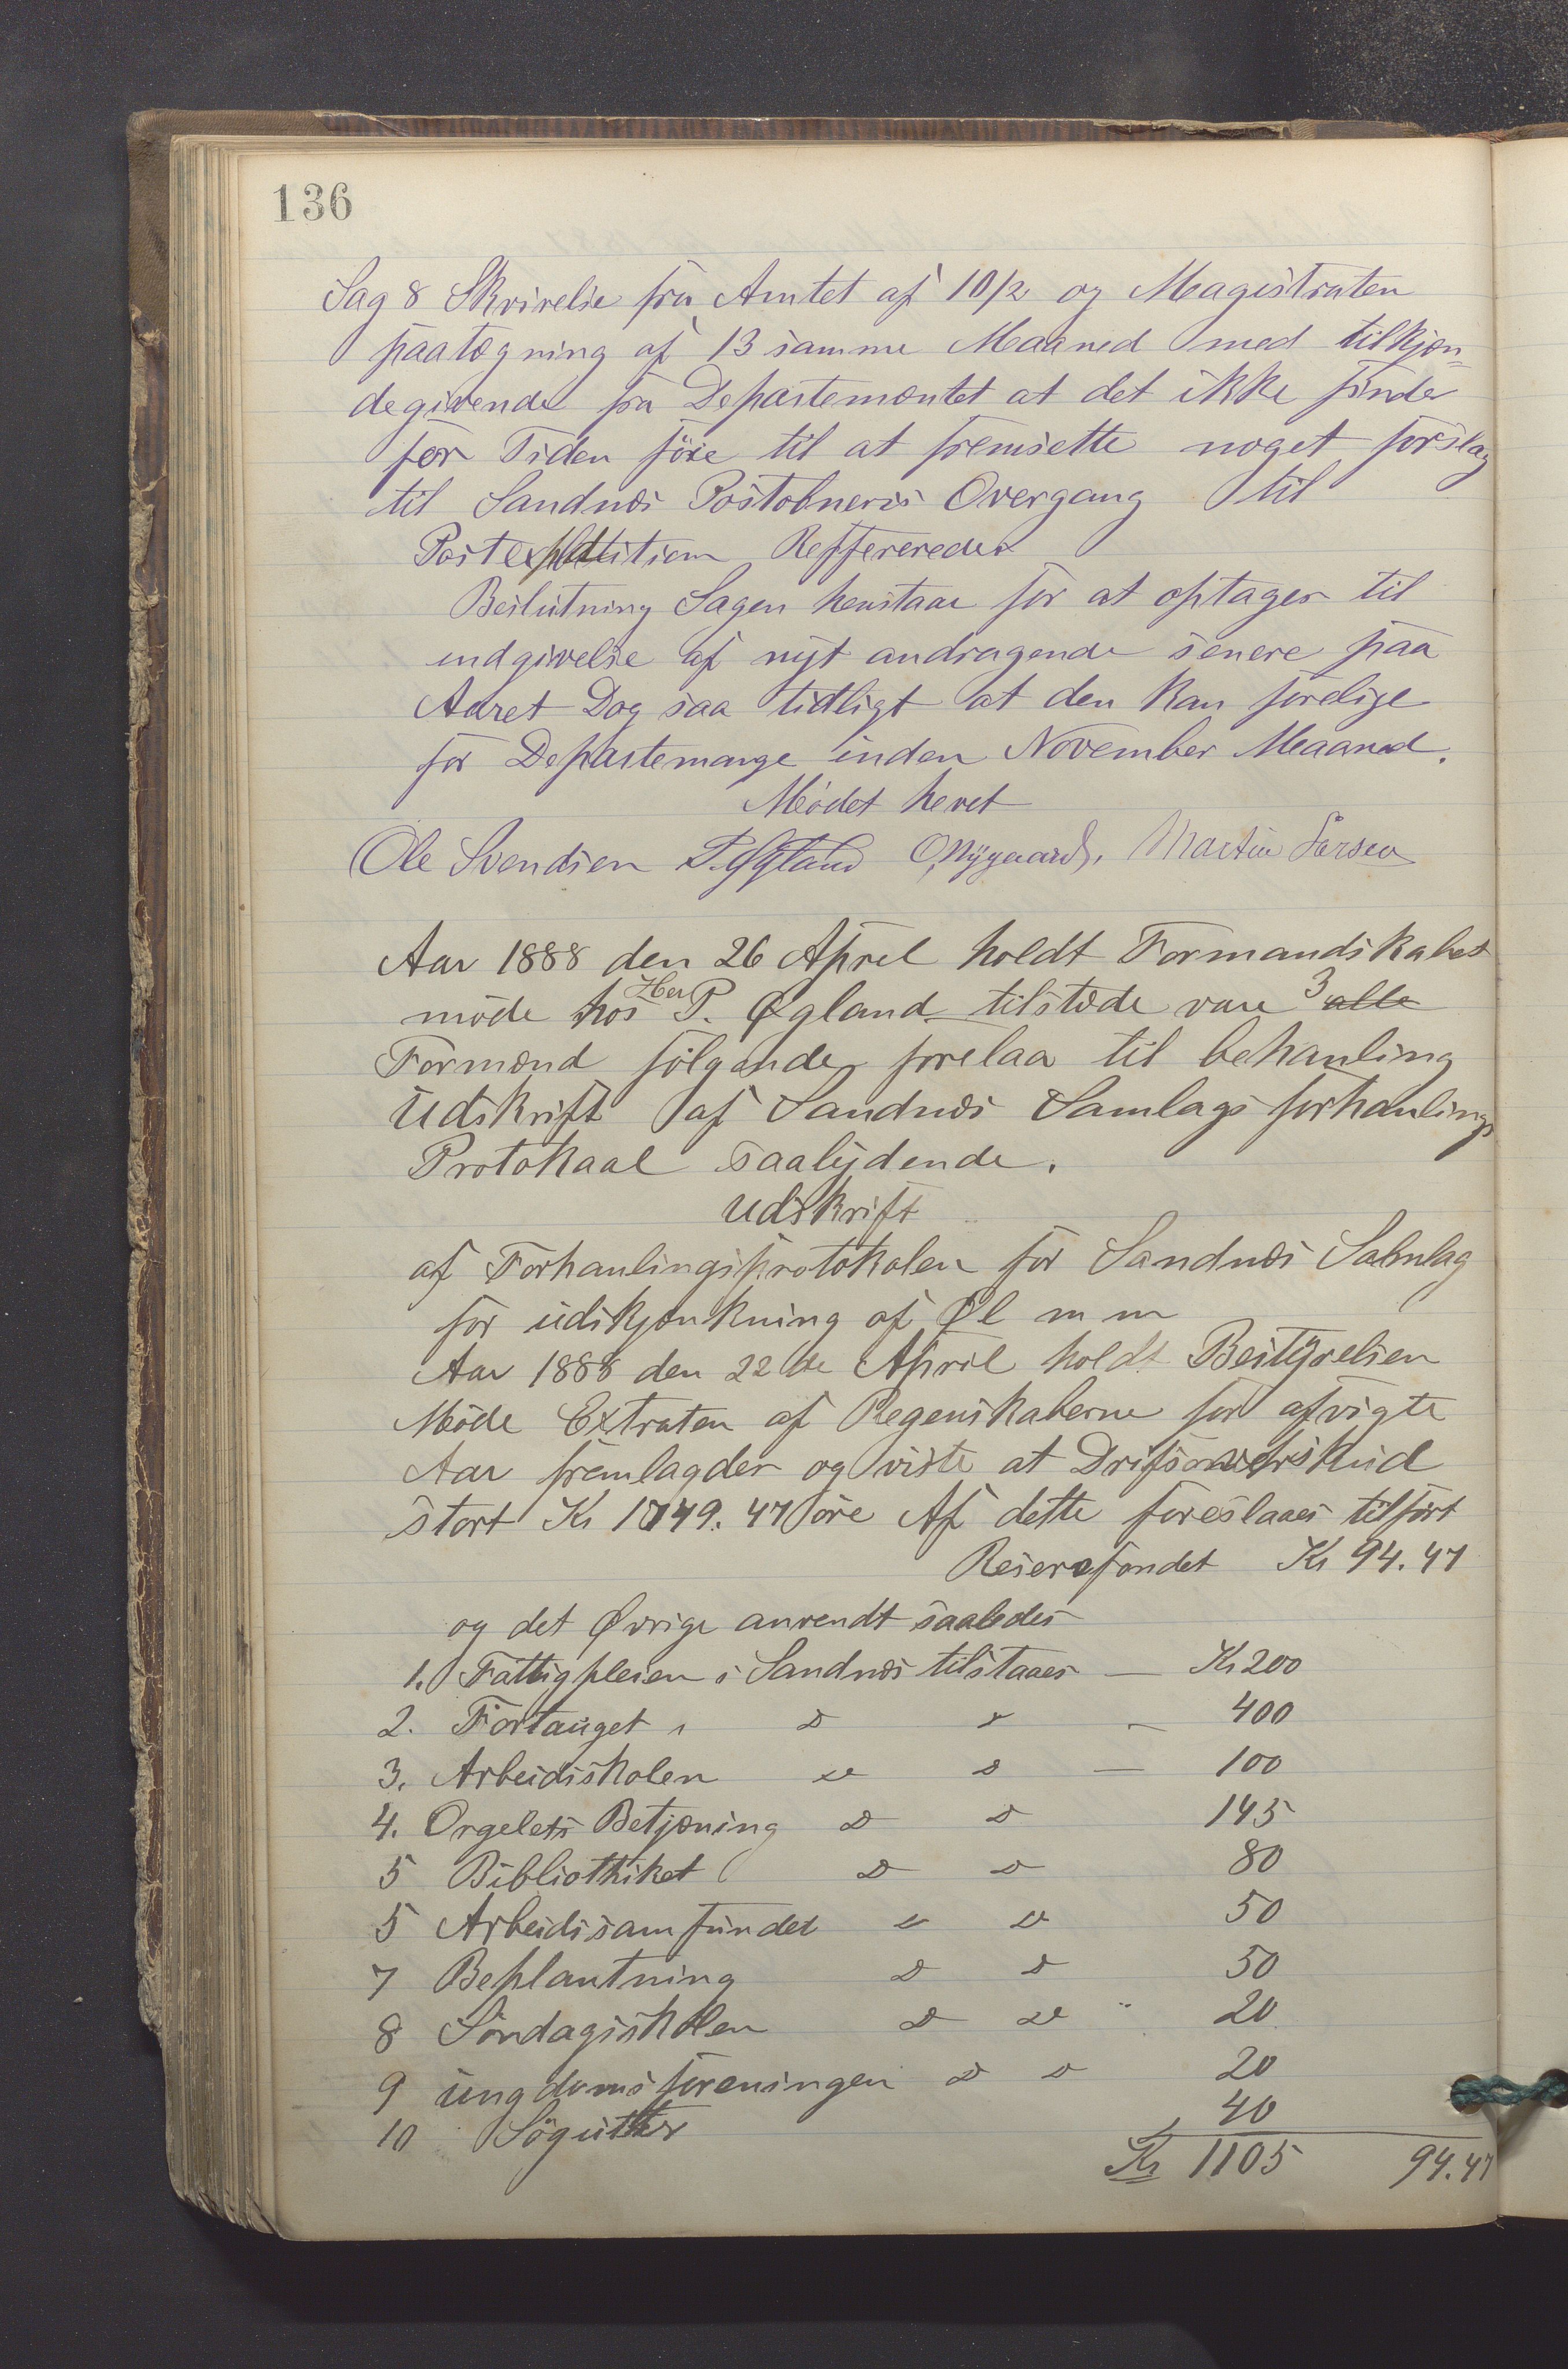 136
Sag 8 Skrivelse fra Amtet af 10/2 og Magistraten
paategning af 13 samme Maaned med tilkjæn=
degivende fra Departemæntet at det ikke finde
for Tiden föie til at fremsette noget forslag
til Sandnæs Postobneris Overgang til
Postexpedition Reffereredes
Beslutning Sagen henstaar for at optages til
indgivelse af nyt andragende senere paa
Aaret Dog saa tidligt at den kan forelige
for Departemange inden November Maaned.
Mödet hevet
Ole Svendsen P. Øgland O. Nygaard. Martin Larsen
Aar 1888 den 26 April holdt Formandskabet
möde hos Her P. Øgland tilstede vare 3 alle
Formænd fölgende forelaa til behanling
Udskrift af Sandnæs Samlags forhanlings
Protokaal saalydende.
Udskrift
af Forhanlingsprotokolen for Sandnæs Samlag
for udskjænkning af Øl m m
Aar 1888 den 22de April holdt Bestyrelsen
Möde Extraten af Regenskaberne for afvigte
Aar fremlagdes og viste at Drifsoverskud
stort Kr 1749.47 öre Af dette foreslaaes tilfört
Reservefondet Kr 94.47
og det Øvrige anvendt saaledes
1. Fattigpleien i Sandnæs tilstaaes — Kr 200
2. Fortauget i D D — 400
3. Arbeidsskolen D D — 100
4. Orgelets Betjæning D D 145
5 Bibliotheket D D 80
5 Arbeidssamfundet D D 50
7 Beplantning D D 50
8 Söndagsskolen D D " 20
9 ungdomsforeningen D D 20
10 Sögutter 40
Kr 1105 94.47